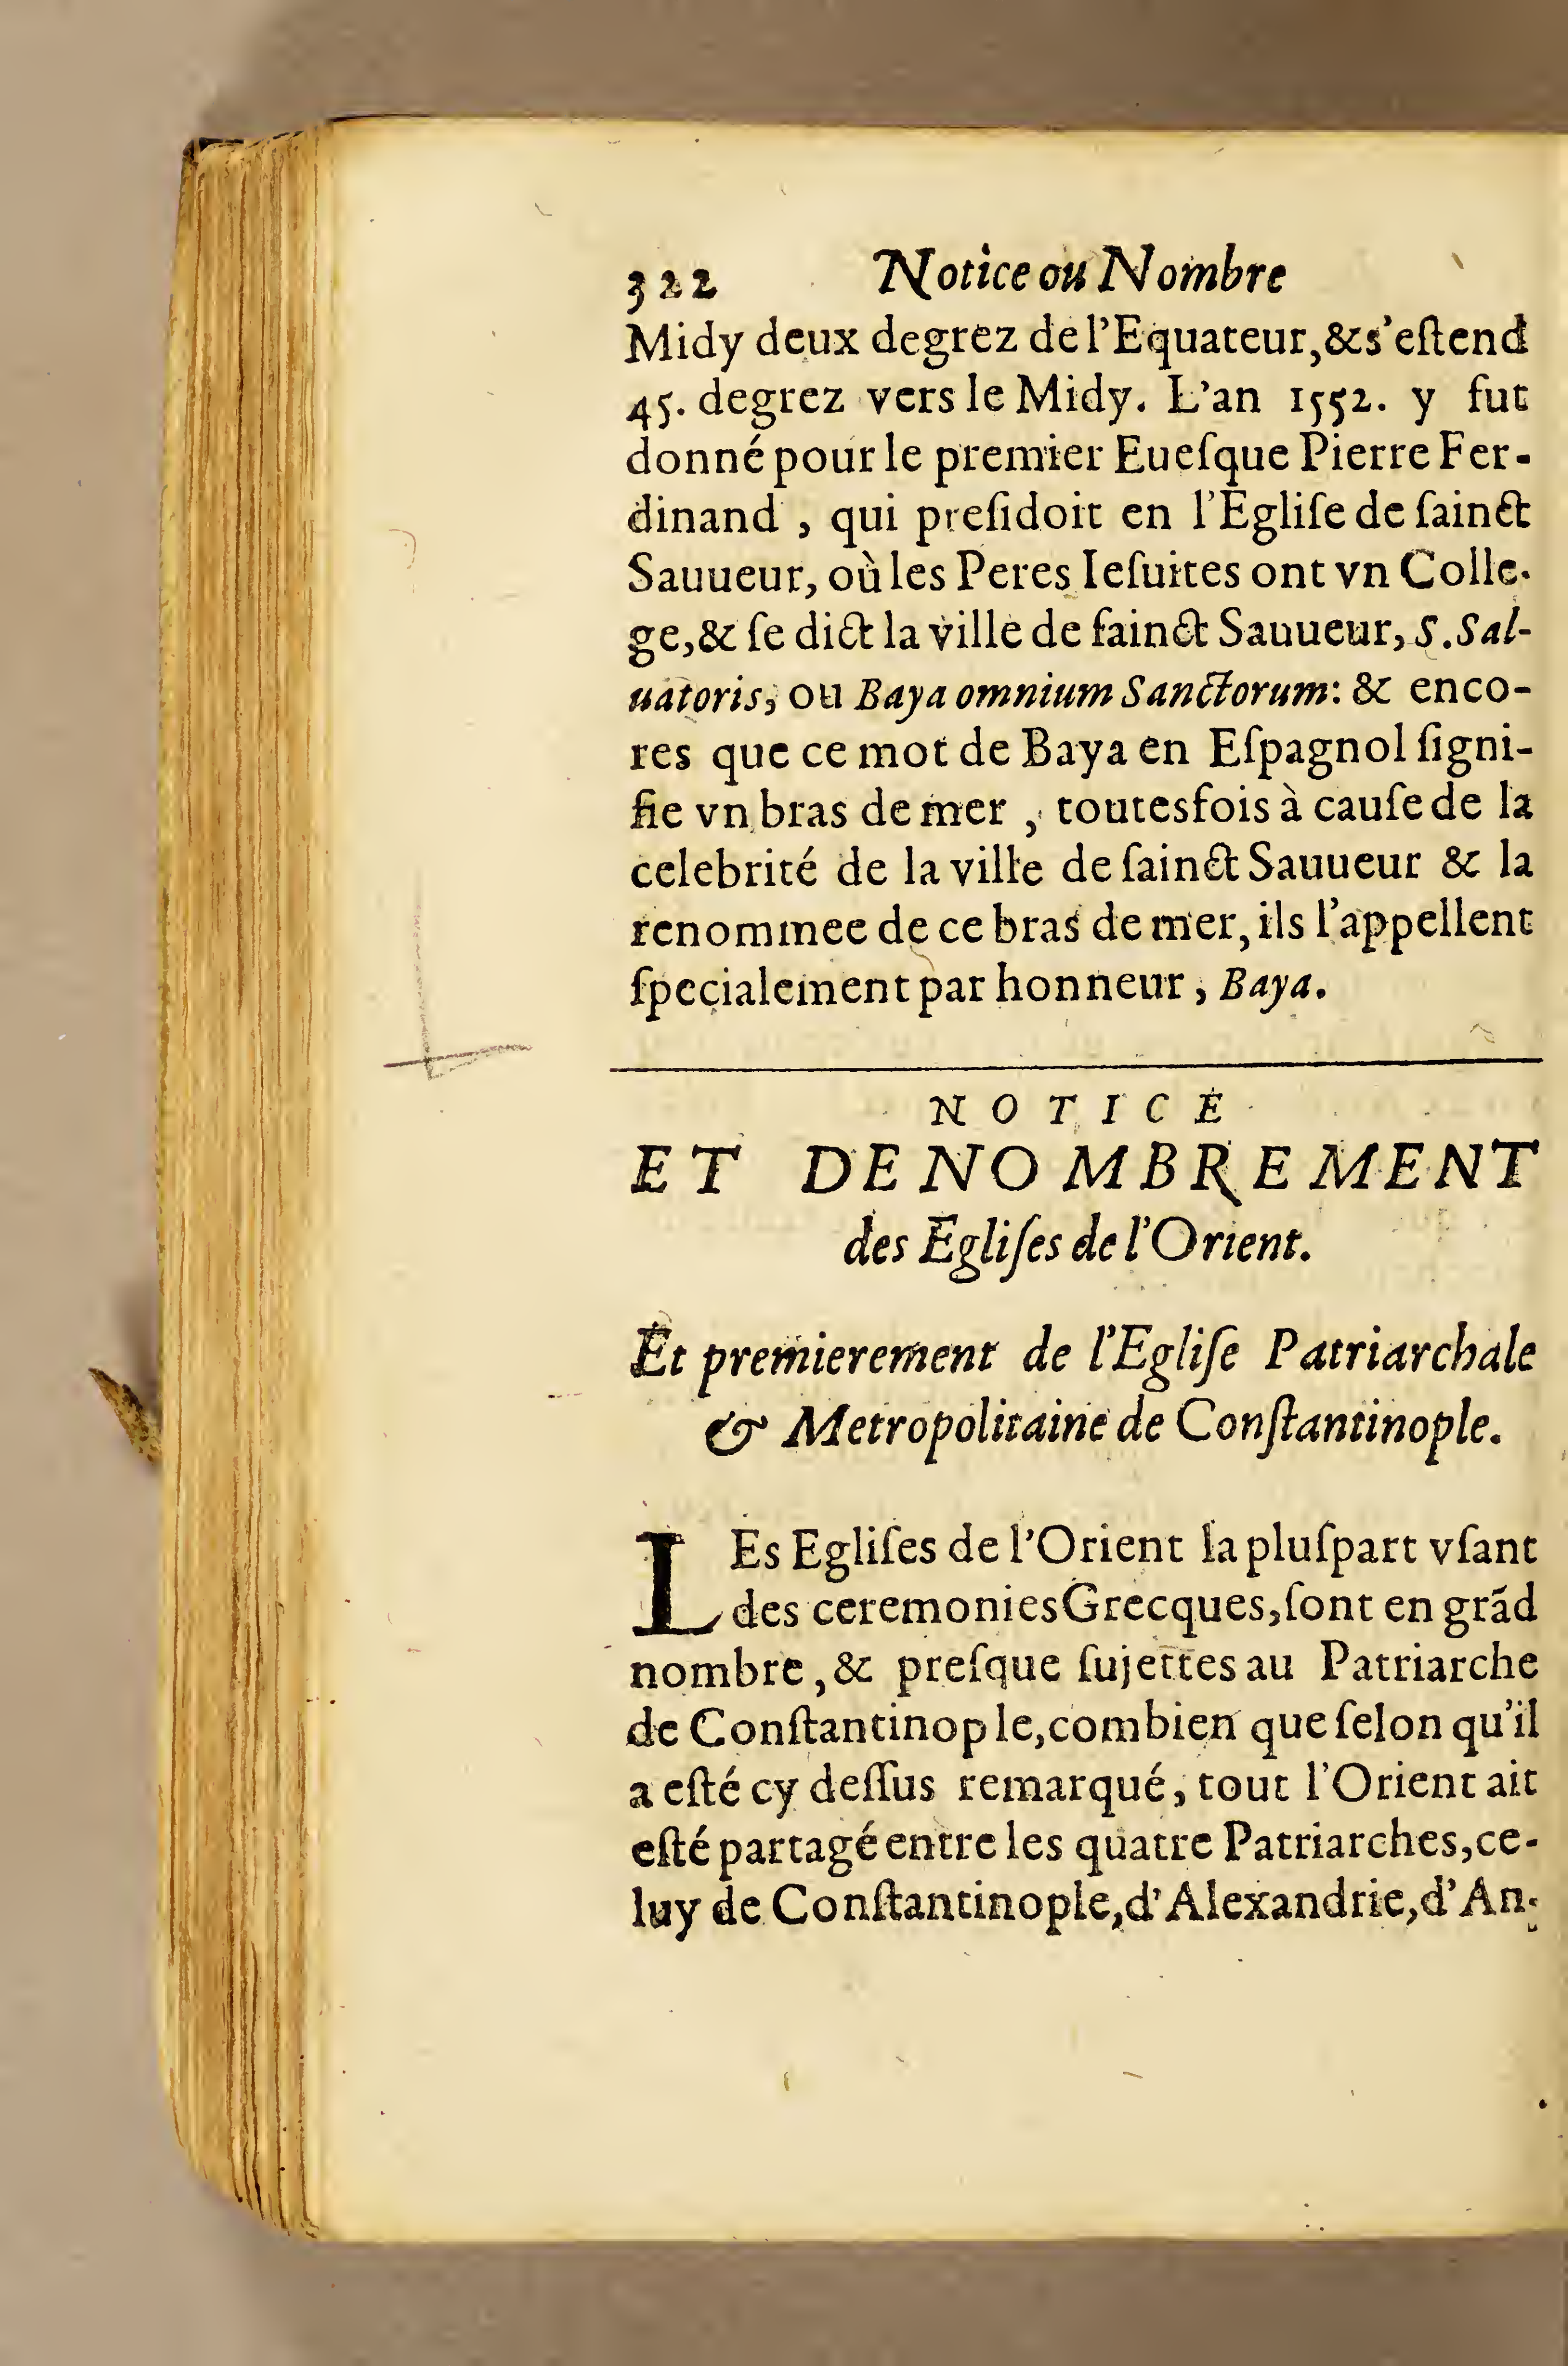 322 Notice ou Nombre
Midy deux degrez de l'Equateur, & s'eſtend
45. degrez vers le Midy. L'an 1552. y fut
donné pour le premier Eueſque Pierre Fer-
dinand , qui preſidoit en l'Egliſe de ſainct
Sauueur, où les Peres Ieſuites ont vn Colle-
ge, & ſe dict la ville de ſainct Sauueur, S. Sal-
uatoris, ou Baya omnium Sanctorum: & enco-
res que ce mot de Baya en Eſpagnol ſigni-
fie vn bras de mer , toutesfois à cauſe de la
celebrité de la ville de ſainct Sauueur & la
renommee de ce bras de mer, ils l'appellent
ſpecialement par honneur , Baya.
NOTICE
ET DENOMBREMENT
des Egliſes de l'Orient.
Et premierement de l'Egliſe Patriarchale
& Metropolitaine de Conſtantinople.
LEs Egliſes de l'Orient la pluſpart vſant
des ceremonies Grecques, ſont en grãd
nombre, & preſque ſujettes au Patriarche
de Conſtantinople, combien que ſelon qu'il
a eſté cy deſſus remarqué, tout l'Orient ait
eſté partagé entre les quatre Patriarches, ce-
luy de Conſtantinople, d'Alexandrie, d'An-